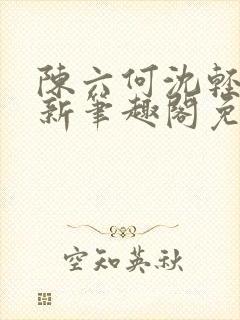 陳六何沈輕
新筆趣閣免
空知英秋